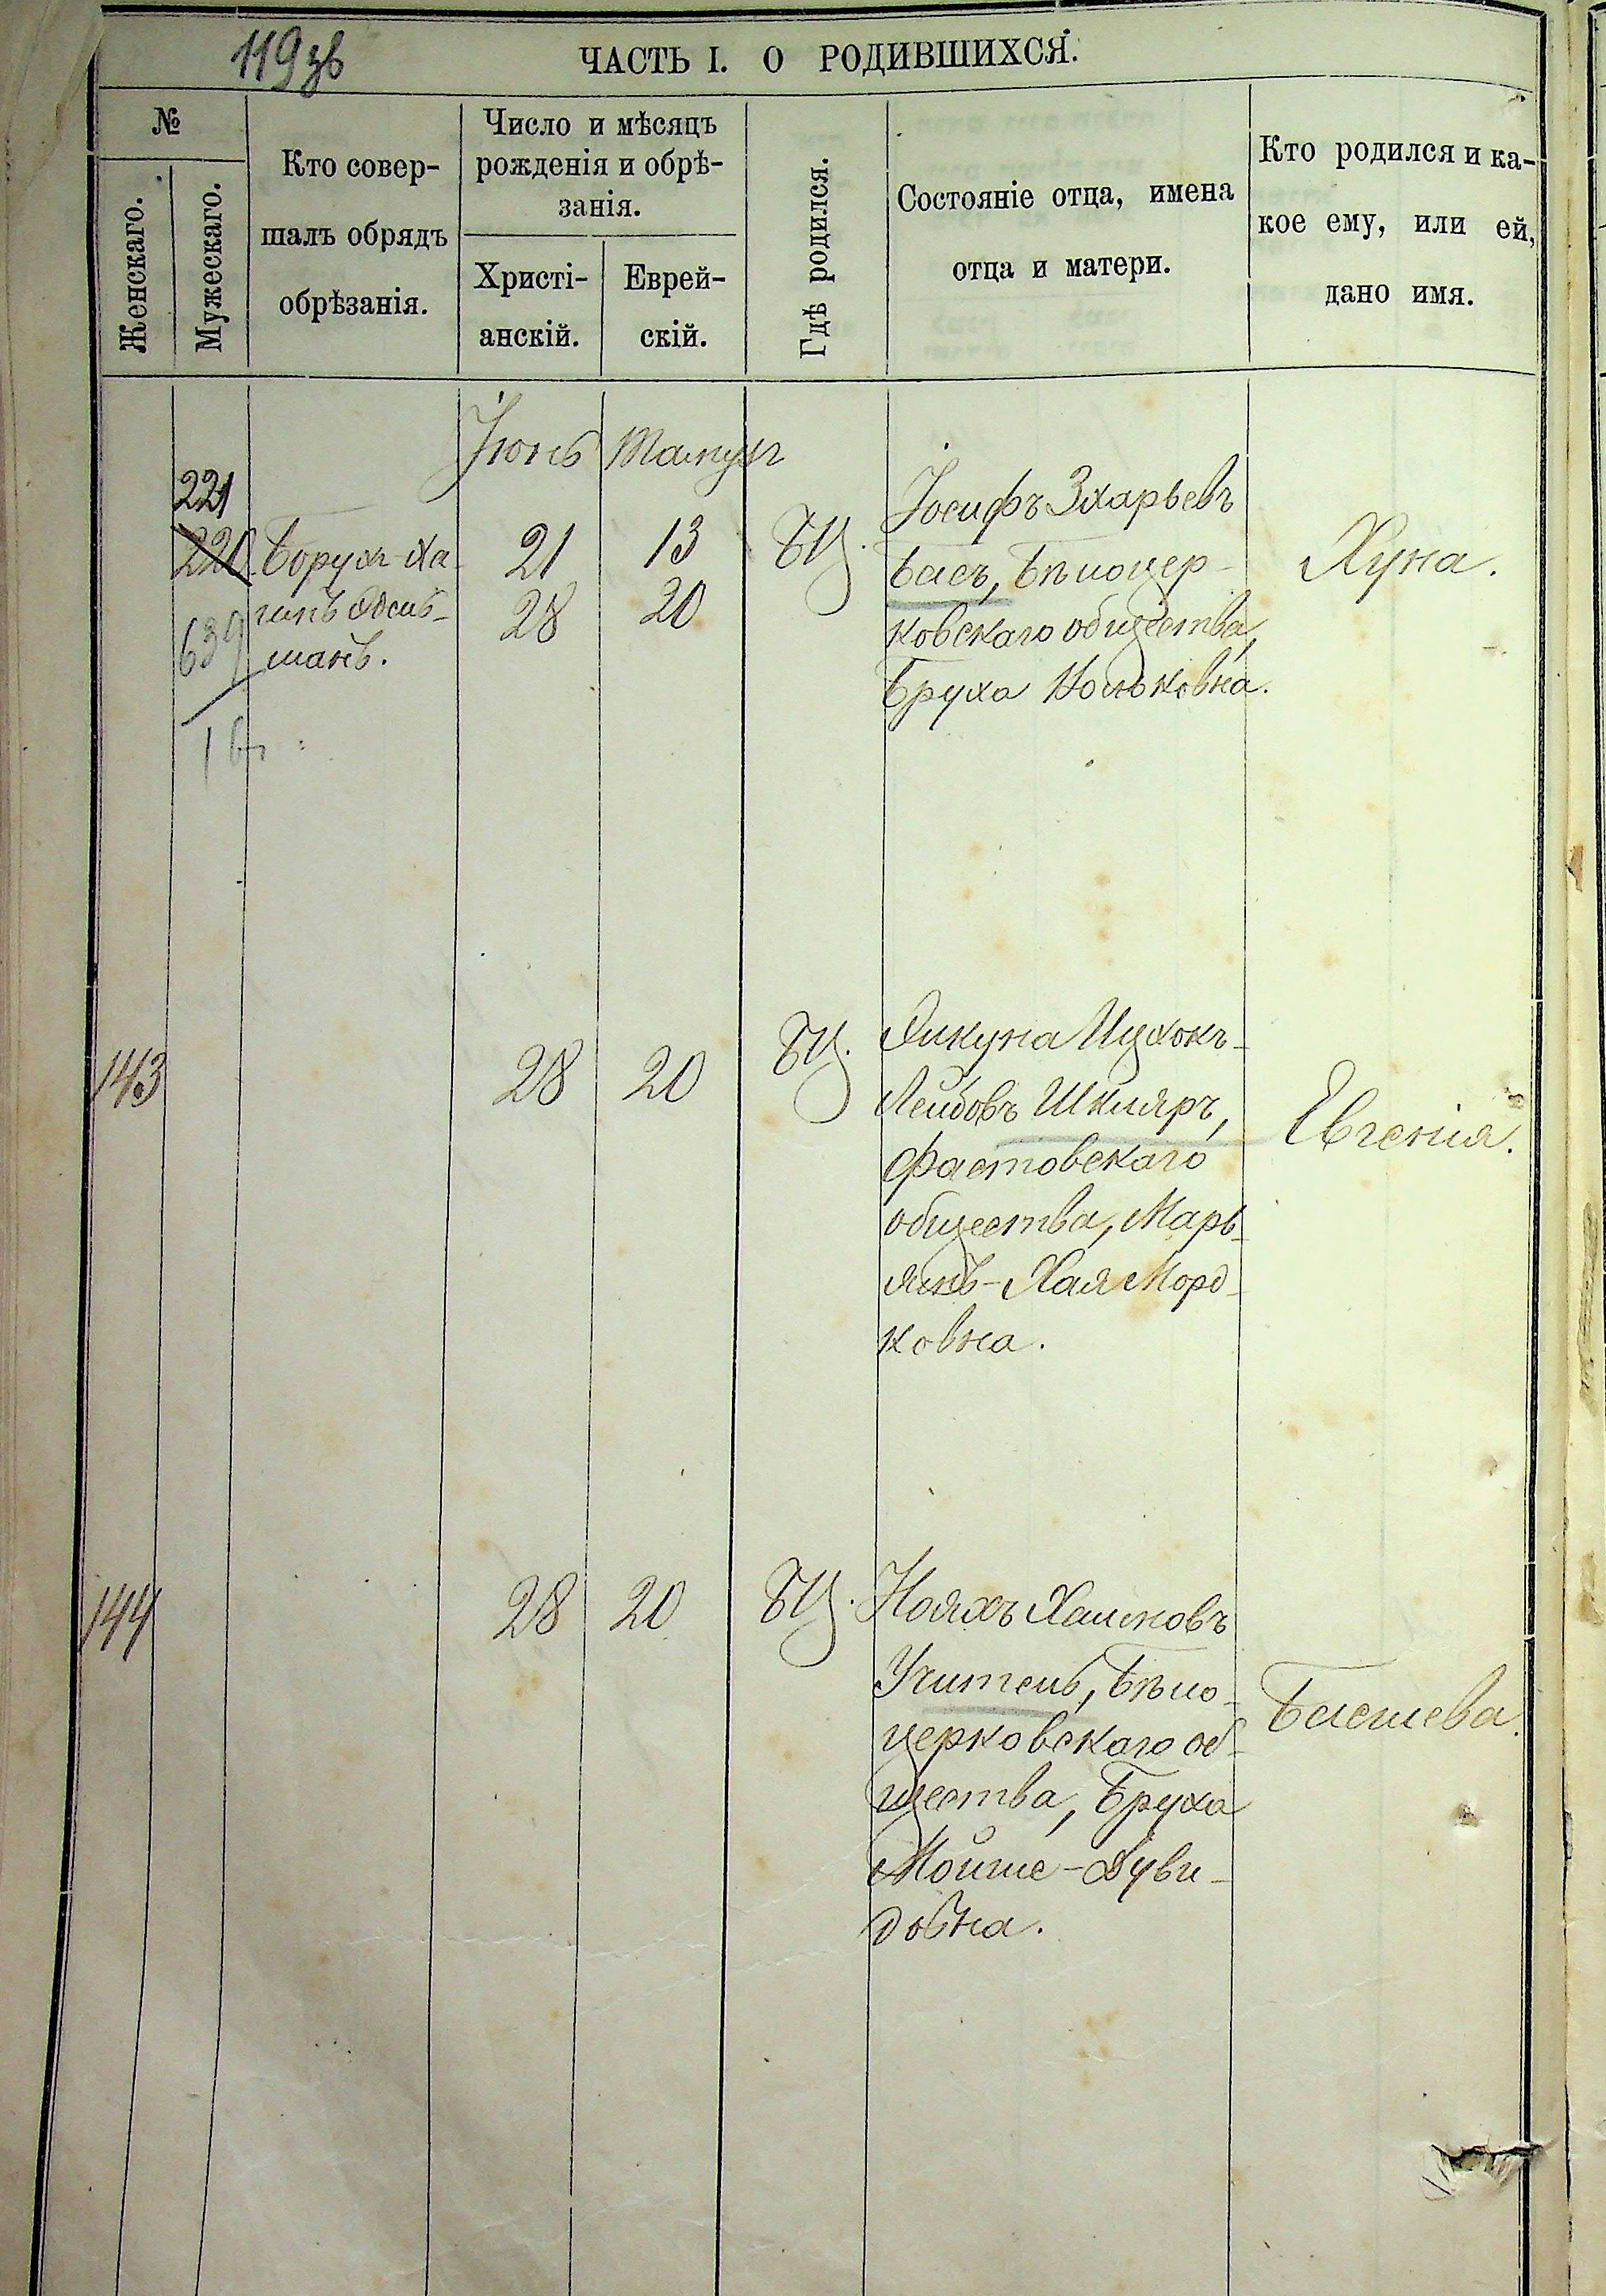 119 зв
ЧАСТЬ I. О РОДИВШИХСЯ.
№
Женскаго.
Мужескаго.
Кто совер-
шалъ обрядъ
обрѣзанія.
Число и мѣсяцъ
рожденія и обрѣ-
занія.
Христі-
анскій.
Еврей-
скій.
Гдѣ родился.
Состояніе отца, имена
отца и матери.
Кто родился и ка-
кое ему, или ей,
дано имя.
Іюнь Тамузъ
221
220. Борухъ-Ха
639
шанъ.
21 13
28 20
БЦ.
Іосифъ Зхарьевъ
Басъ, Бѣлоцер-
ковскаго общества,
Бруха
Хуна.
143 28 20 БЦ.
Янкуна Ицхокъ-
Лейбовъ Шкляръ,
Фастовскаго
общества, Марь-
янъ-Хая Морд-
ковна.
Евгенія.
144 28 20 БЦ.
Нояхъ Хаимовъ
Учитель, Бѣло-
церковскаго об-
щества, Бруха
Мойше-Дуви-
довна.
Басшева.